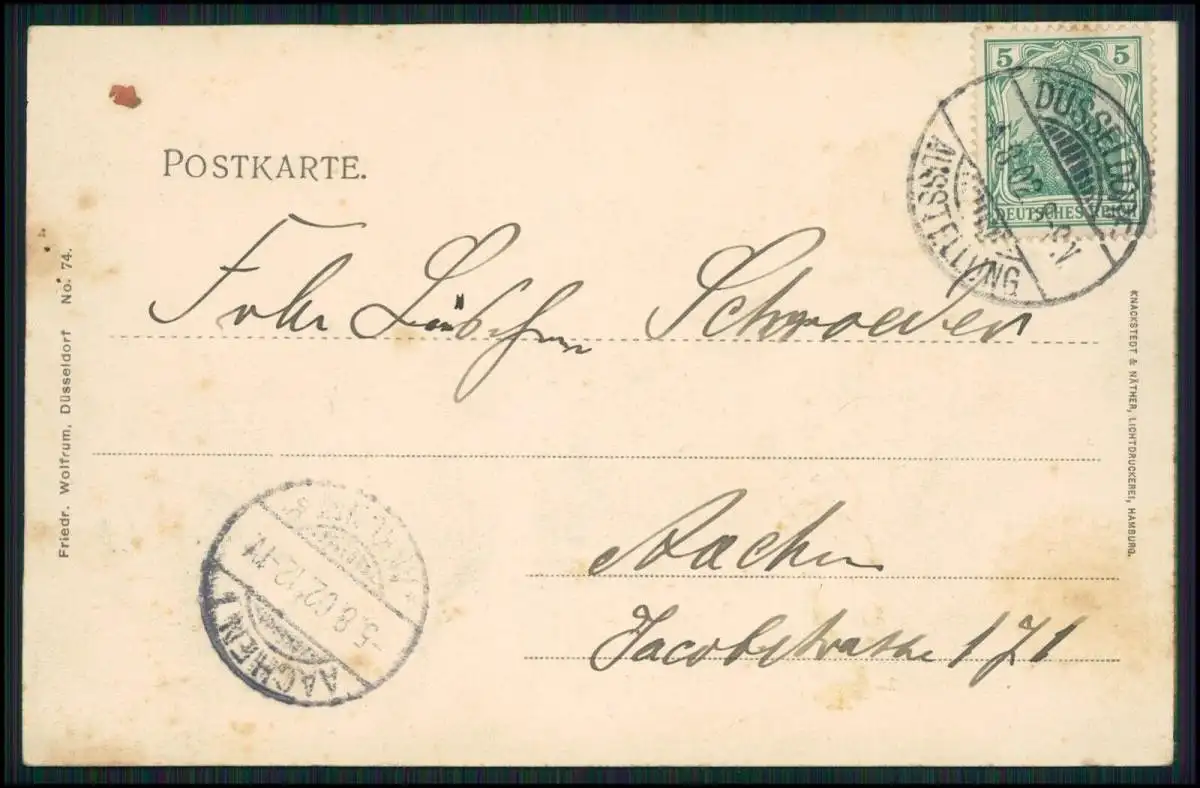 5 5
DEUTSCHES REICH
DÜSSELDORF
4.8.02. 8-9.N
AUSSTELLUNG
POSTKARTE.
Frln Lüschen Schroeder
Aachen
Jacobstrasse 171
AACHEN 1
5.8.02.12-1V.
Friedr. Wolfrum, Düsseldorf No. 74.
KNACKSTEDT & NÄTHER, LICHTDRUCKEREI, HAMBURG.